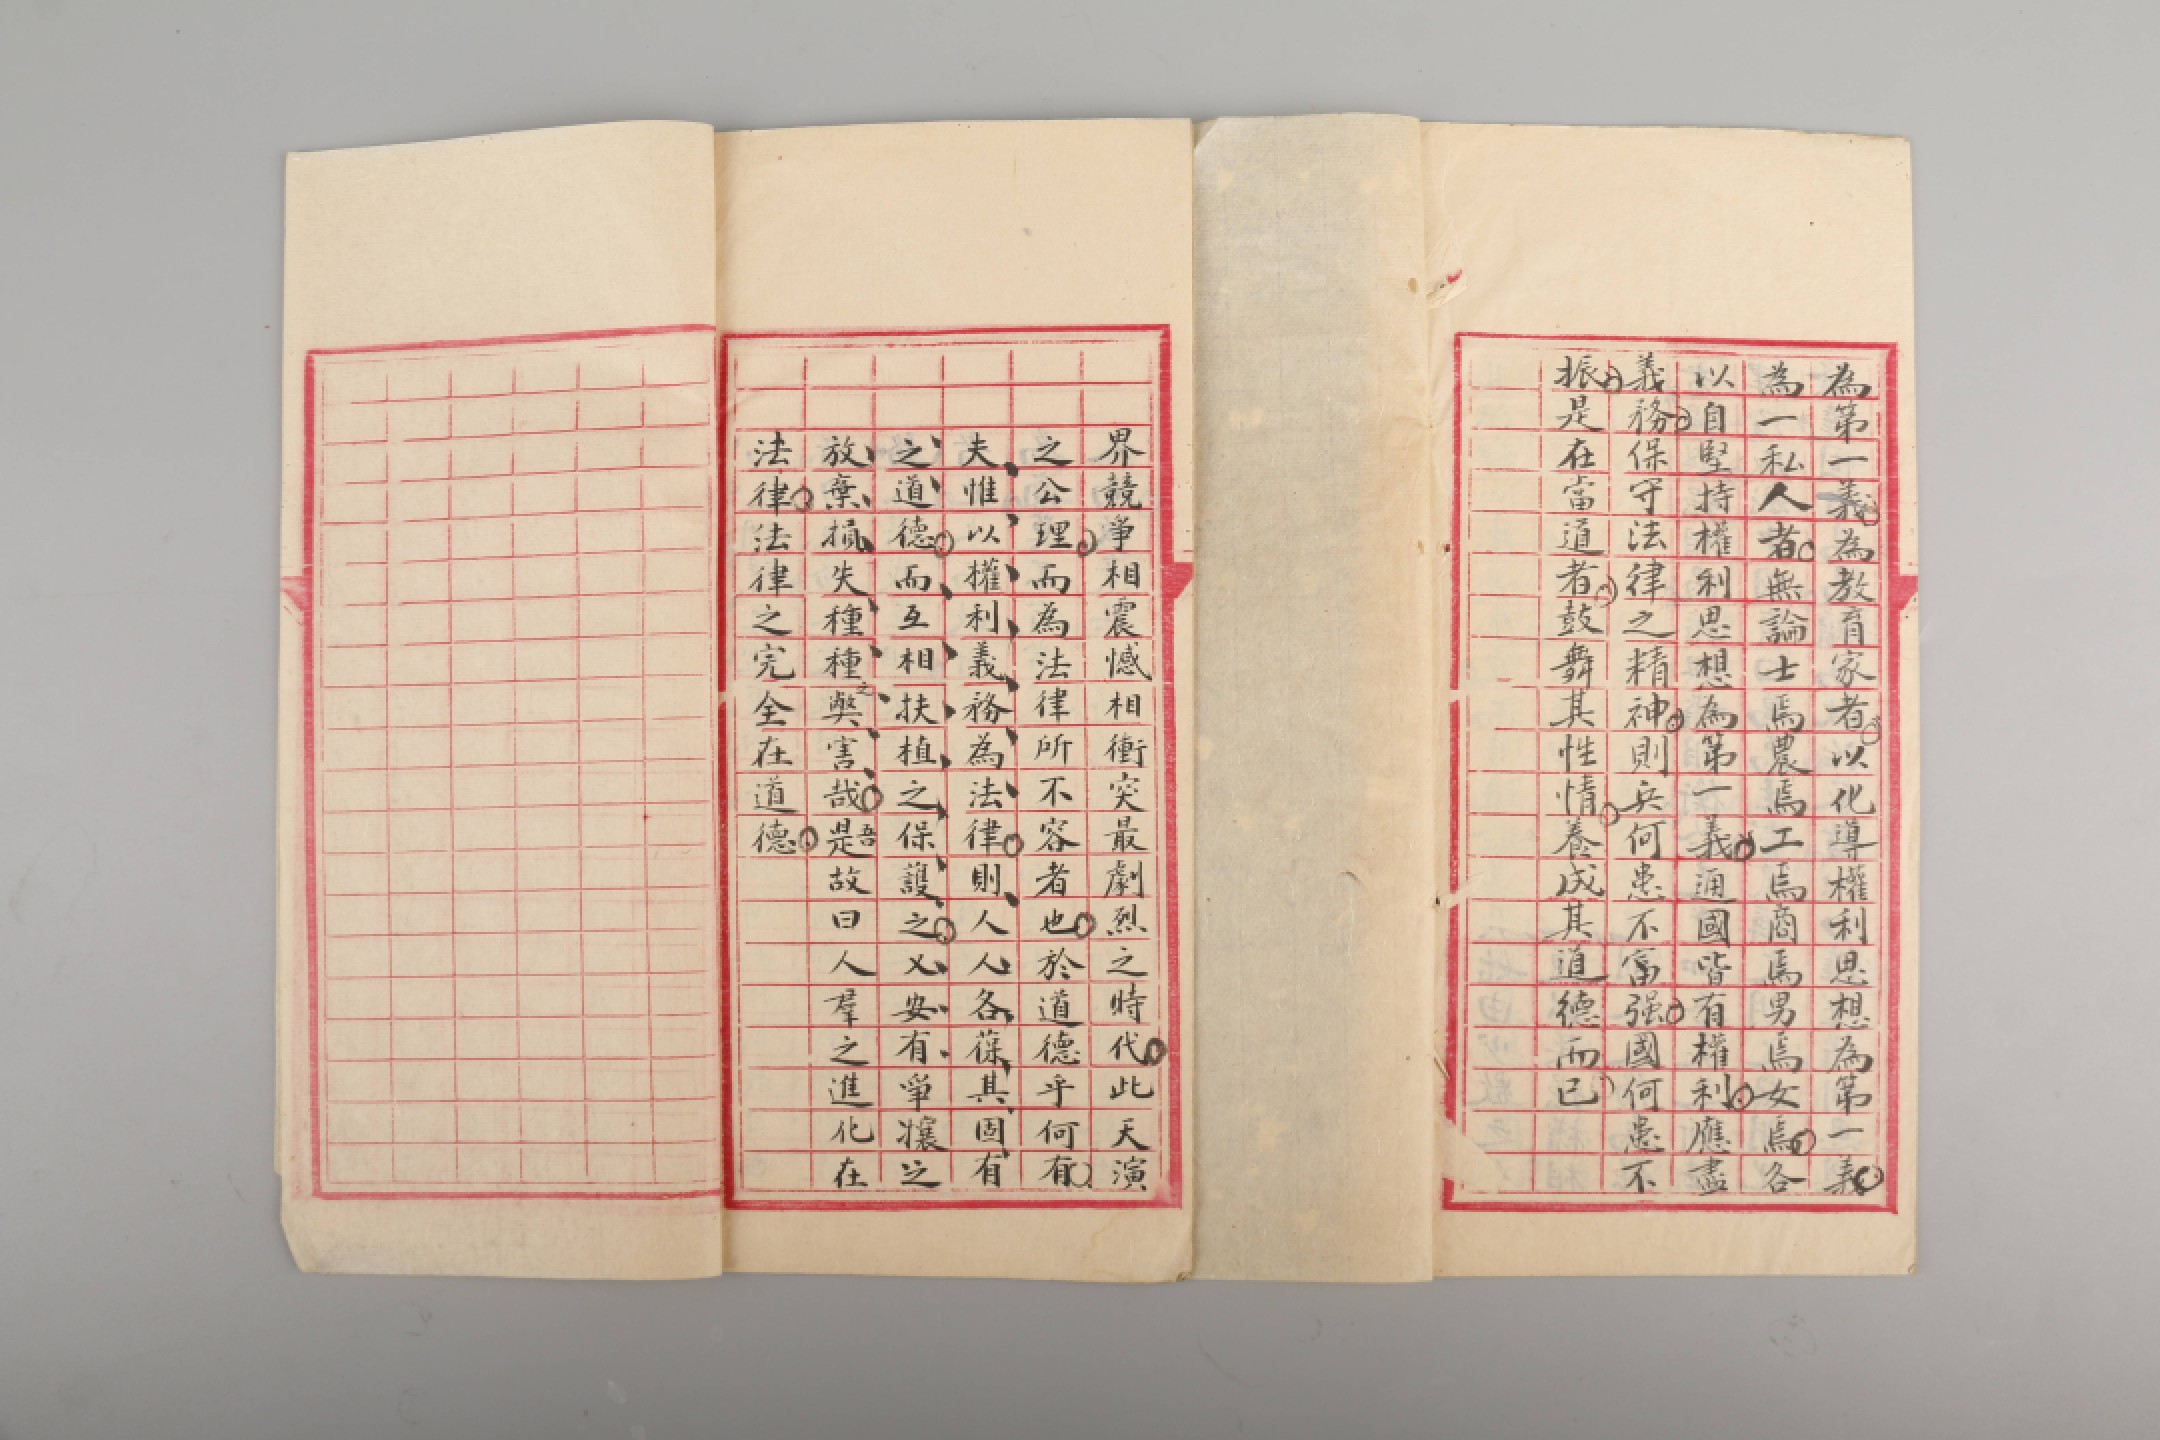 為第一義為教育家者以化導權利思想為第一義
為一私人者無論士焉農焉工焉商焉男焉女焉各
以自堅持權利思想為第一義通國皆有權利應盡
義務保守法律之精神則兵何患不富强國何患不
振是在當道者鼓舞其性情養成其道德而已
界競爭相震憾相衝突最劇烈之時代此天演
之公理而為法律所不容者也於道德乎何有
夫惟以權利義務為法律則人人各葆其固有
之道德而互相扶植之保護之又安有爭攘之
放棄損失種種之弊害哉吾是故曰人羣之進化在
法律法律之完全在道德